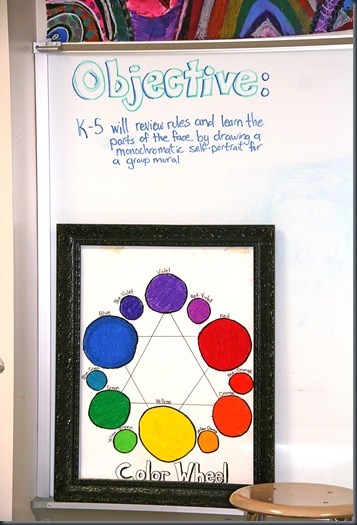 Objective:
K-5 will review rules and learn the
parts of the face by drawing a
monochromatic self-portrait for
a group mural
Violet
Red Violet
Blue
Red
Red-Orange
Green
Orange
Yellow
Color Wheel